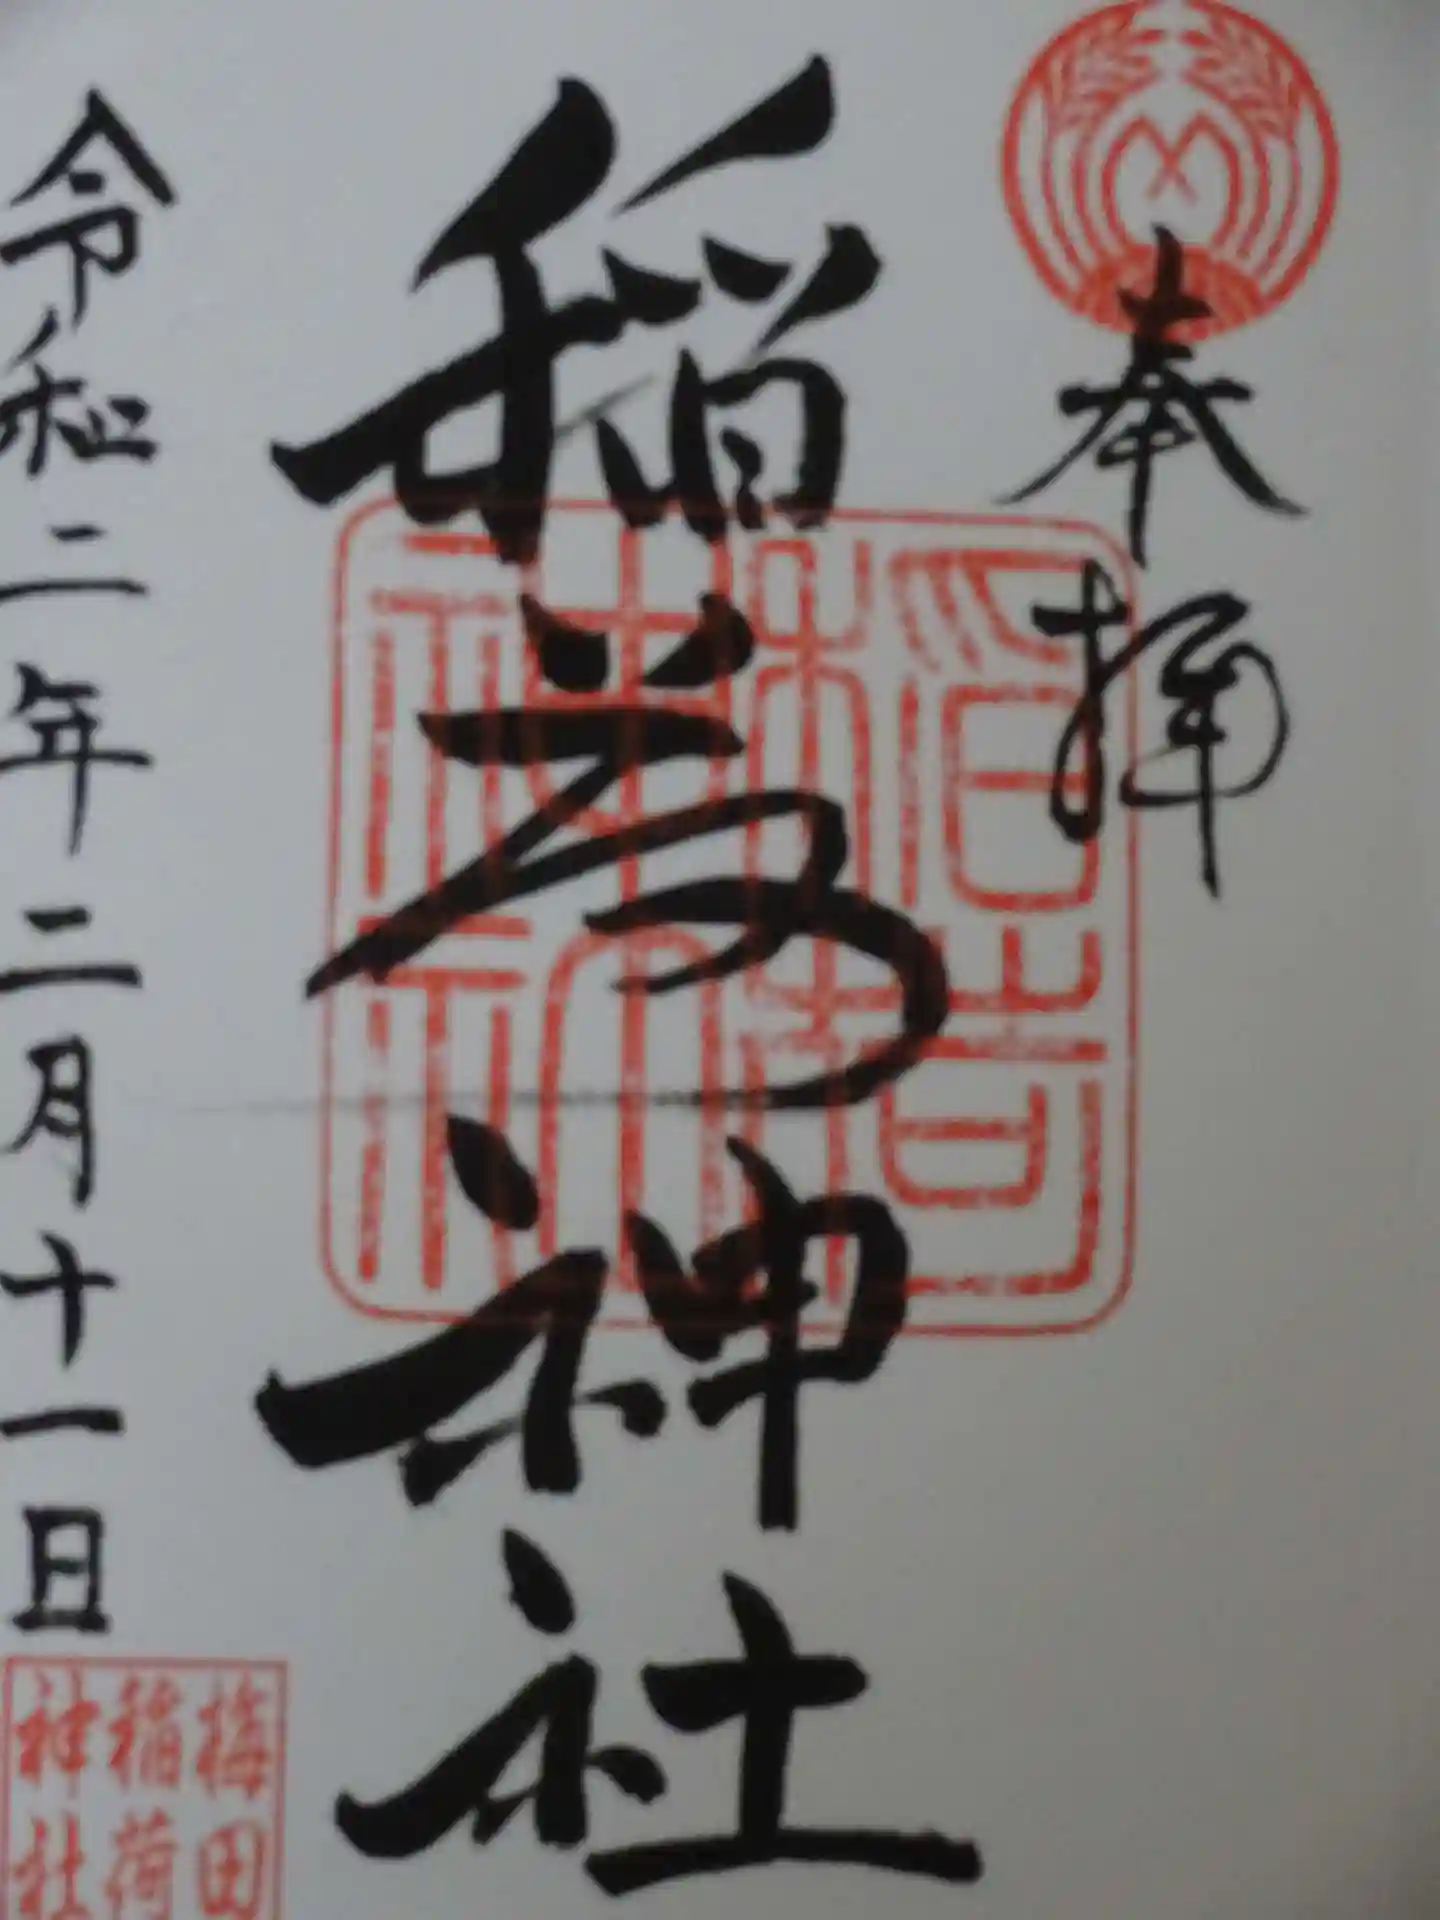 奉拝
稲荷神社
令和二年二月十一日
梅田
稲荷
神社